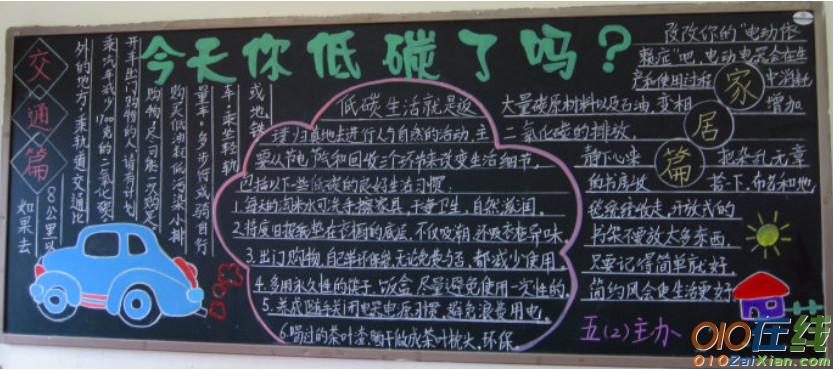 今天你低碳了吗？
交通篇
如果去
8公里以
外的地方，乘轨道交通比
乘汽车减少1700克的二氧化碳。
开车出门购物的人，请有计划
购物，尽可能一次购足。
购买低油耗低污染小排
量车，多步行或骑自行
车，乘坐轻轨
或地铁
低碳生活就是返
璞归真地去进行人与自然的活动，主
要从节电节气和回收三个环节来改变生活细节，
包括以下些低碳的良好生活习惯：
1.每天的淘米水可洗手擦家具，干净卫生，自然滋润。
2.将废旧报纸垫在衣橱的底层，不仅吸潮，还吸衣橱异味。
3.出门购物，自己带环保袋，无论免费与否，都减少使用。
4.多用永久性的筷子、饭盒，尽量避免使用一次性的。
5.养成随手关闭电器电源习惯，避免浪费用电。
6.喝过的茶叶渣，晒干做成茶叶枕头，环保。
家居篇
改改你的“电动依
赖症”吧，电动电器会在生
产和使用过程中消耗
大量碳原材料以及石油，变相增加
二氧化碳的排放。
静下心来把杂乱无章
的书房收拾一下，布艺和地
毯统统收走，开放式的
书架不要放太多东西，
只要记得简单就好。
简约风会使生活更好
五(2)主办
010在线
010ZaiXian.com